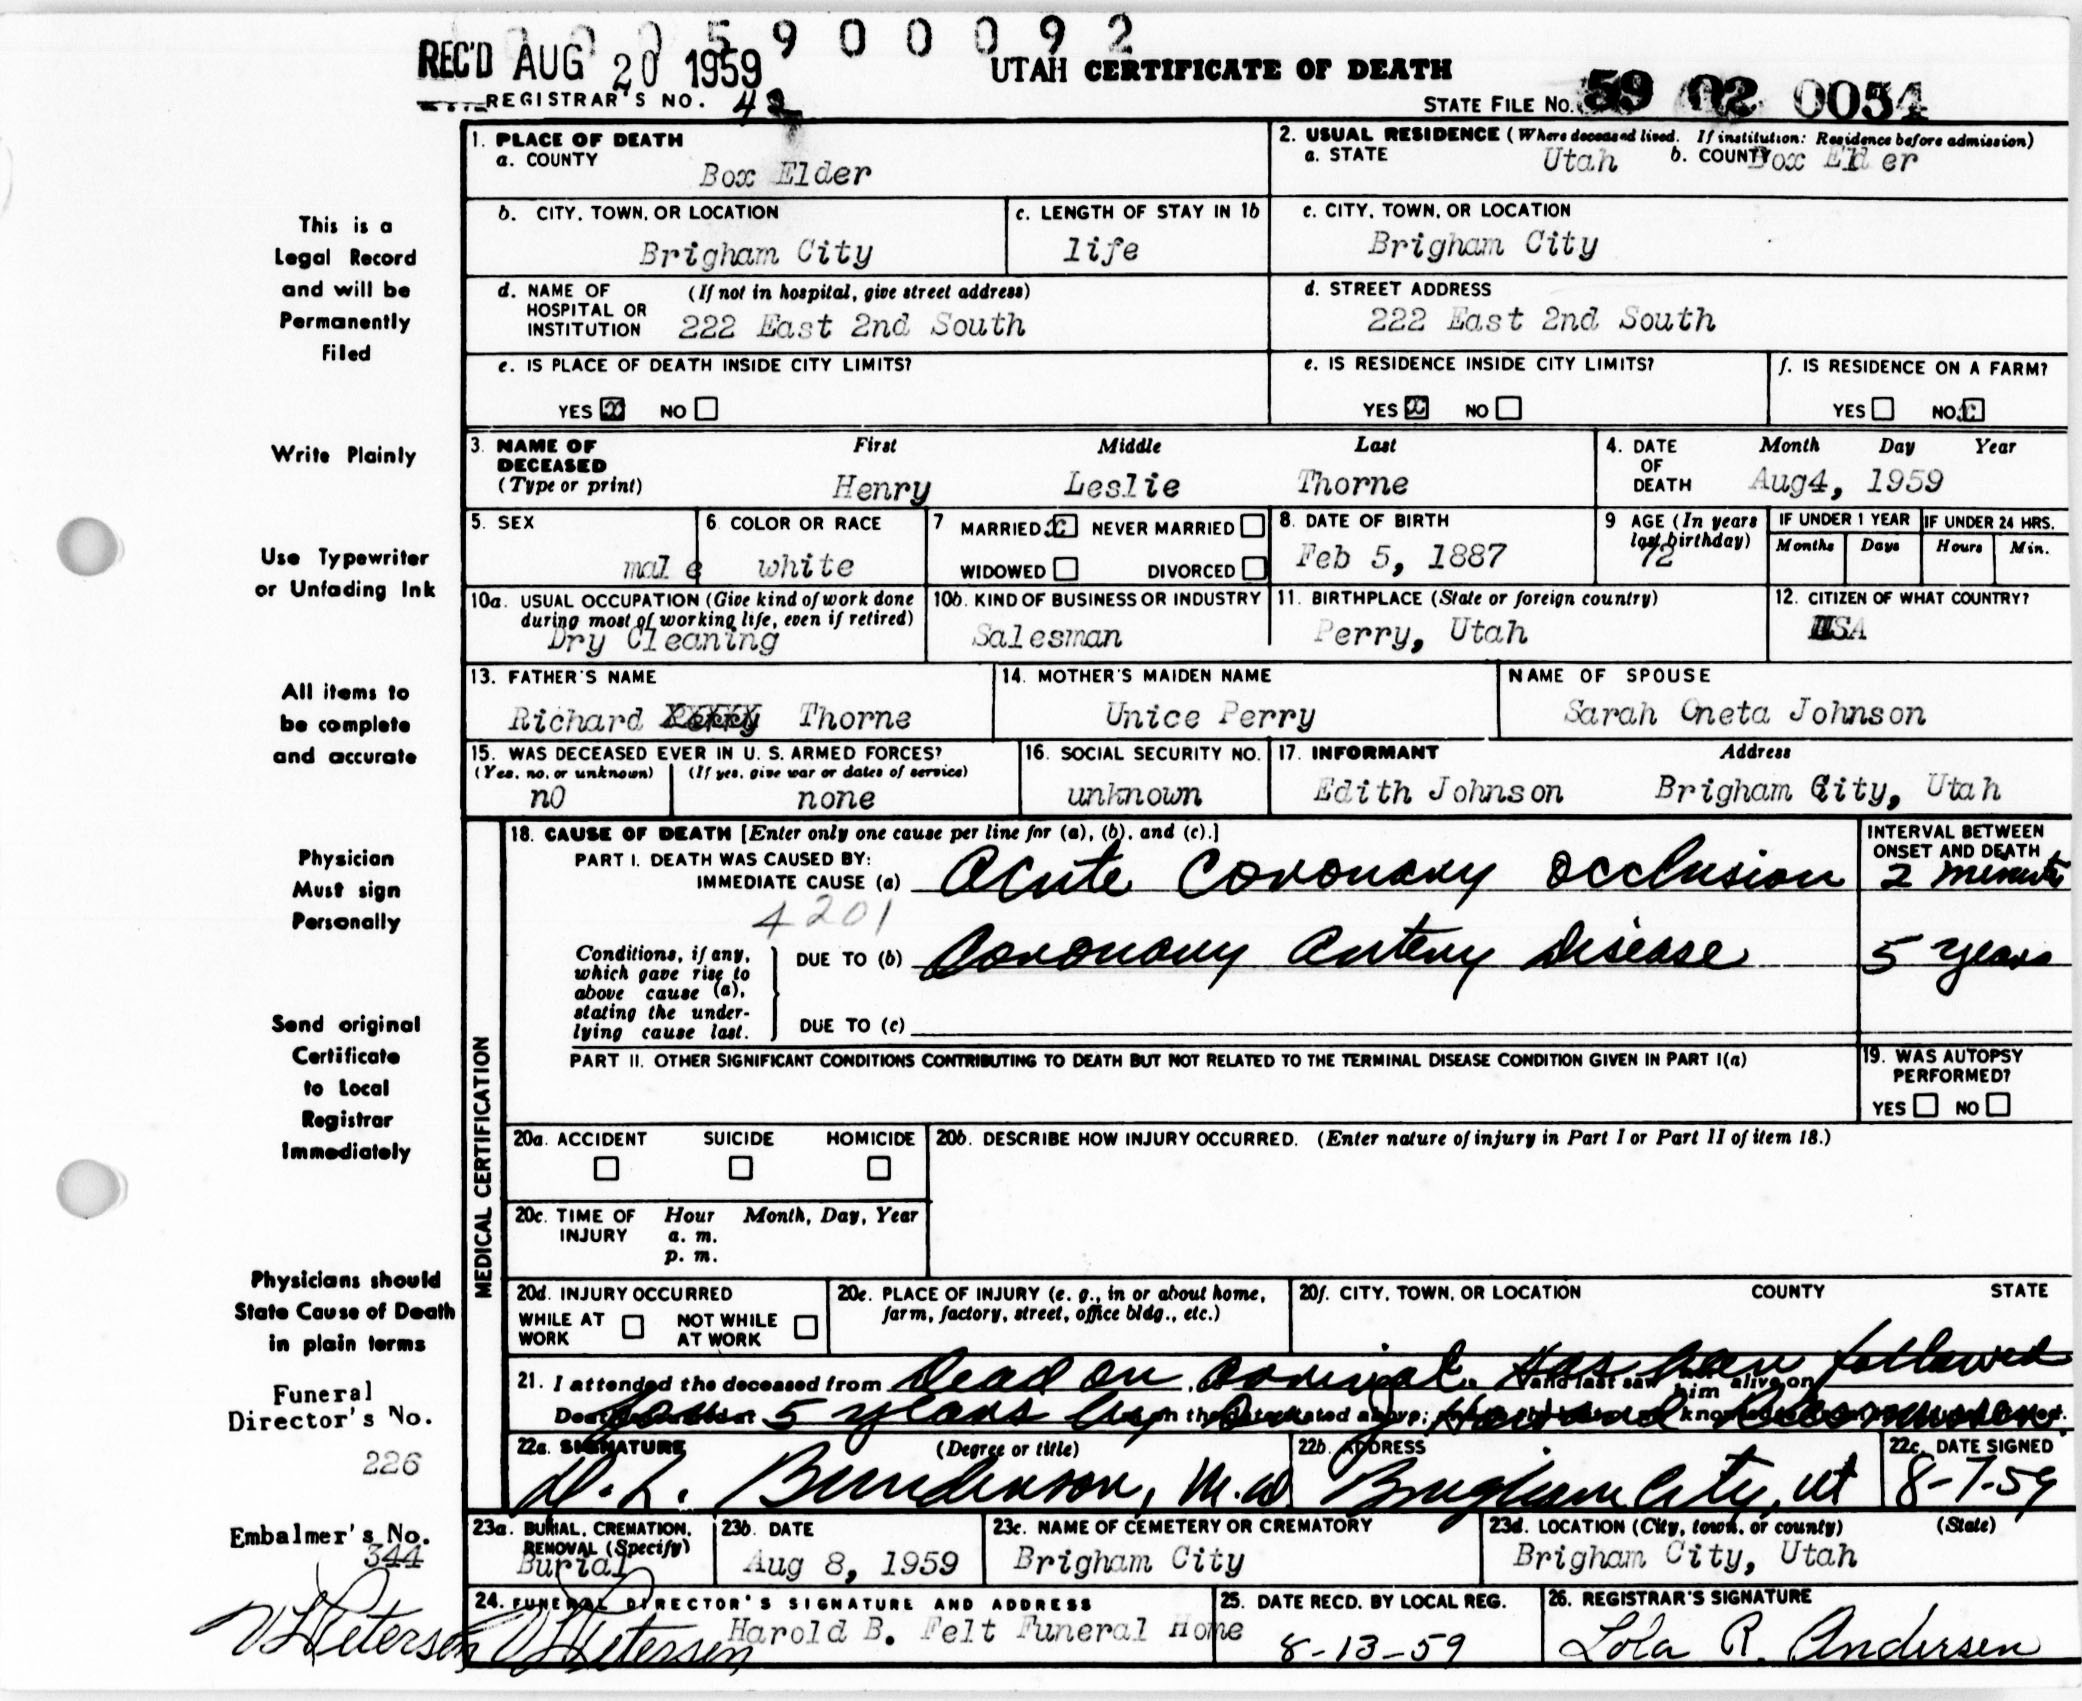 0 5 9 0 0 0 9 2
REC'D AUG 20 1959
UTAH CERTIFICATE OF DEATH
REGISTRAR'S NO. 42
STATE FILE NO. 59 02 0054
This is a
Legal Record
and will be
Permanently
Filed
Write Plainly
Use Typewriter
or Unfading Ink
All items to
be complete
and accurate
Physician
Must sign
Personally
Send original
Certificate
to Local
Registrar
Immediately
Physicians should
State Cause of Death
in plain terms
Funeral
Director's No.
226
Embalmer's No.
344
V L Petersen
1. PLACE OF DEATH
a. COUNTY
Box Elder
2. USUAL RESIDENCE (Where deceased lived. If institution: Residence before admission)
a. STATE Utah b. COUNTY Box Elder
b. CITY, TOWN, OR LOCATION
Brigham City
c. LENGTH OF STAY IN 1b
life
c. CITY, TOWN, OR LOCATION
Brigham City
d. NAME OF (If not in hospital, give street address)
HOSPITAL OR
INSTITUTION 222 East 2nd South
d. STREET ADDRESS
222 East 2nd South
e. IS PLACE OF DEATH INSIDE CITY LIMITS?
YES x NO
e. IS RESIDENCE INSIDE CITY LIMITS?
YES x NO
f. IS RESIDENCE ON A FARM?
YES NO x
3. NAME OF DECEASED (Type or print)
First Middle Last
Henry Leslie Thorne
4. DATE OF DEATH
Month Day Year
Aug4, 1959
5. SEX
male
6. COLOR OR RACE
white
7 MARRIED x NEVER MARRIED
WIDOWED DIVORCED
8. DATE OF BIRTH
Feb 5, 1887
9 AGE (In years
last birthday)
72
IF UNDER 1 YEAR
Months Days
IF UNDER 24 HRS.
Hours Min.
10a. USUAL OCCUPATION (Give kind of work done
during most of working life, even if retired)
Dry Cleaning
10b. KIND OF BUSINESS OR INDUSTRY
Salesman
11. BIRTHPLACE (State or foreign country)
Perry, Utah
12. CITIZEN OF WHAT COUNTRY?
USA
13. FATHER'S NAME
Richard Perry Thorne
14. MOTHER'S MAIDEN NAME
Unice Perry
NAME OF SPOUSE
Sarah Oneta Johnson
15. WAS DECEASED EVER IN U. S. ARMED FORCES?
(Yes, no, or unknown) (If yes, give war or dates of service)
no none
16. SOCIAL SECURITY NO.
unknown
17. INFORMANT Address
Edith Johnson Brigham City, Utah
MEDICAL CERTIFICATION
18. CAUSE OF DEATH [Enter only one cause per line for (a), (b), and (c).]
PART I. DEATH WAS CAUSED BY:
IMMEDIATE CAUSE (a) Acute Coronary Occlusion
4201
INTERVAL BETWEEN
ONSET AND DEATH
2 minutes
Conditions, if any,
which gave rise to
above cause (a),
stating the under-
lying cause last.
DUE TO (b) Coronary Artery Disease
5 years
DUE TO (c)
PART II. OTHER SIGNIFICANT CONDITIONS CONTRIBUTING TO DEATH BUT NOT RELATED TO THE TERMINAL DISEASE CONDITION GIVEN IN PART I(a)
19. WAS AUTOPSY
PERFORMED?
YES NO
20a. ACCIDENT SUICIDE HOMICIDE
20b. DESCRIBE HOW INJURY OCCURRED. (Enter nature of injury in Part I or Part II of item 18.)
20c. TIME OF INJURY
Hour Month, Day, Year
a. m.
p. m.
20d. INJURY OCCURRED
WHILE AT WORK NOT WHILE AT WORK
20e. PLACE OF INJURY (e. g., in or about home,
farm, factory, street, office bldg., etc.)
20f. CITY, TOWN, OR LOCATION COUNTY STATE
21. I attended the deceased from Dead on arrival. Has been followed
and last saw him alive on
for 5 years by Dr. J Howard Rasmussen
22a. SIGNATURE (Degree or title)
D. L. Bunderson, M.D.
22b. ADDRESS
Brigham City, Ut
22c. DATE SIGNED
8-7-59
23a. BURIAL, CREMATION,
REMOVAL (Specify)
Burial
23b. DATE
Aug 8, 1959
23c. NAME OF CEMETERY OR CREMATORY
Brigham City
23d. LOCATION (City, town, or county) (State)
Brigham City, Utah
24. FUNERAL DIRECTOR'S SIGNATURE AND ADDRESS
V L Petersen Harold B. Felt Funeral Home
25. DATE RECD. BY LOCAL REG.
8-13-59
26. REGISTRAR'S SIGNATURE
Lola R. Andersen